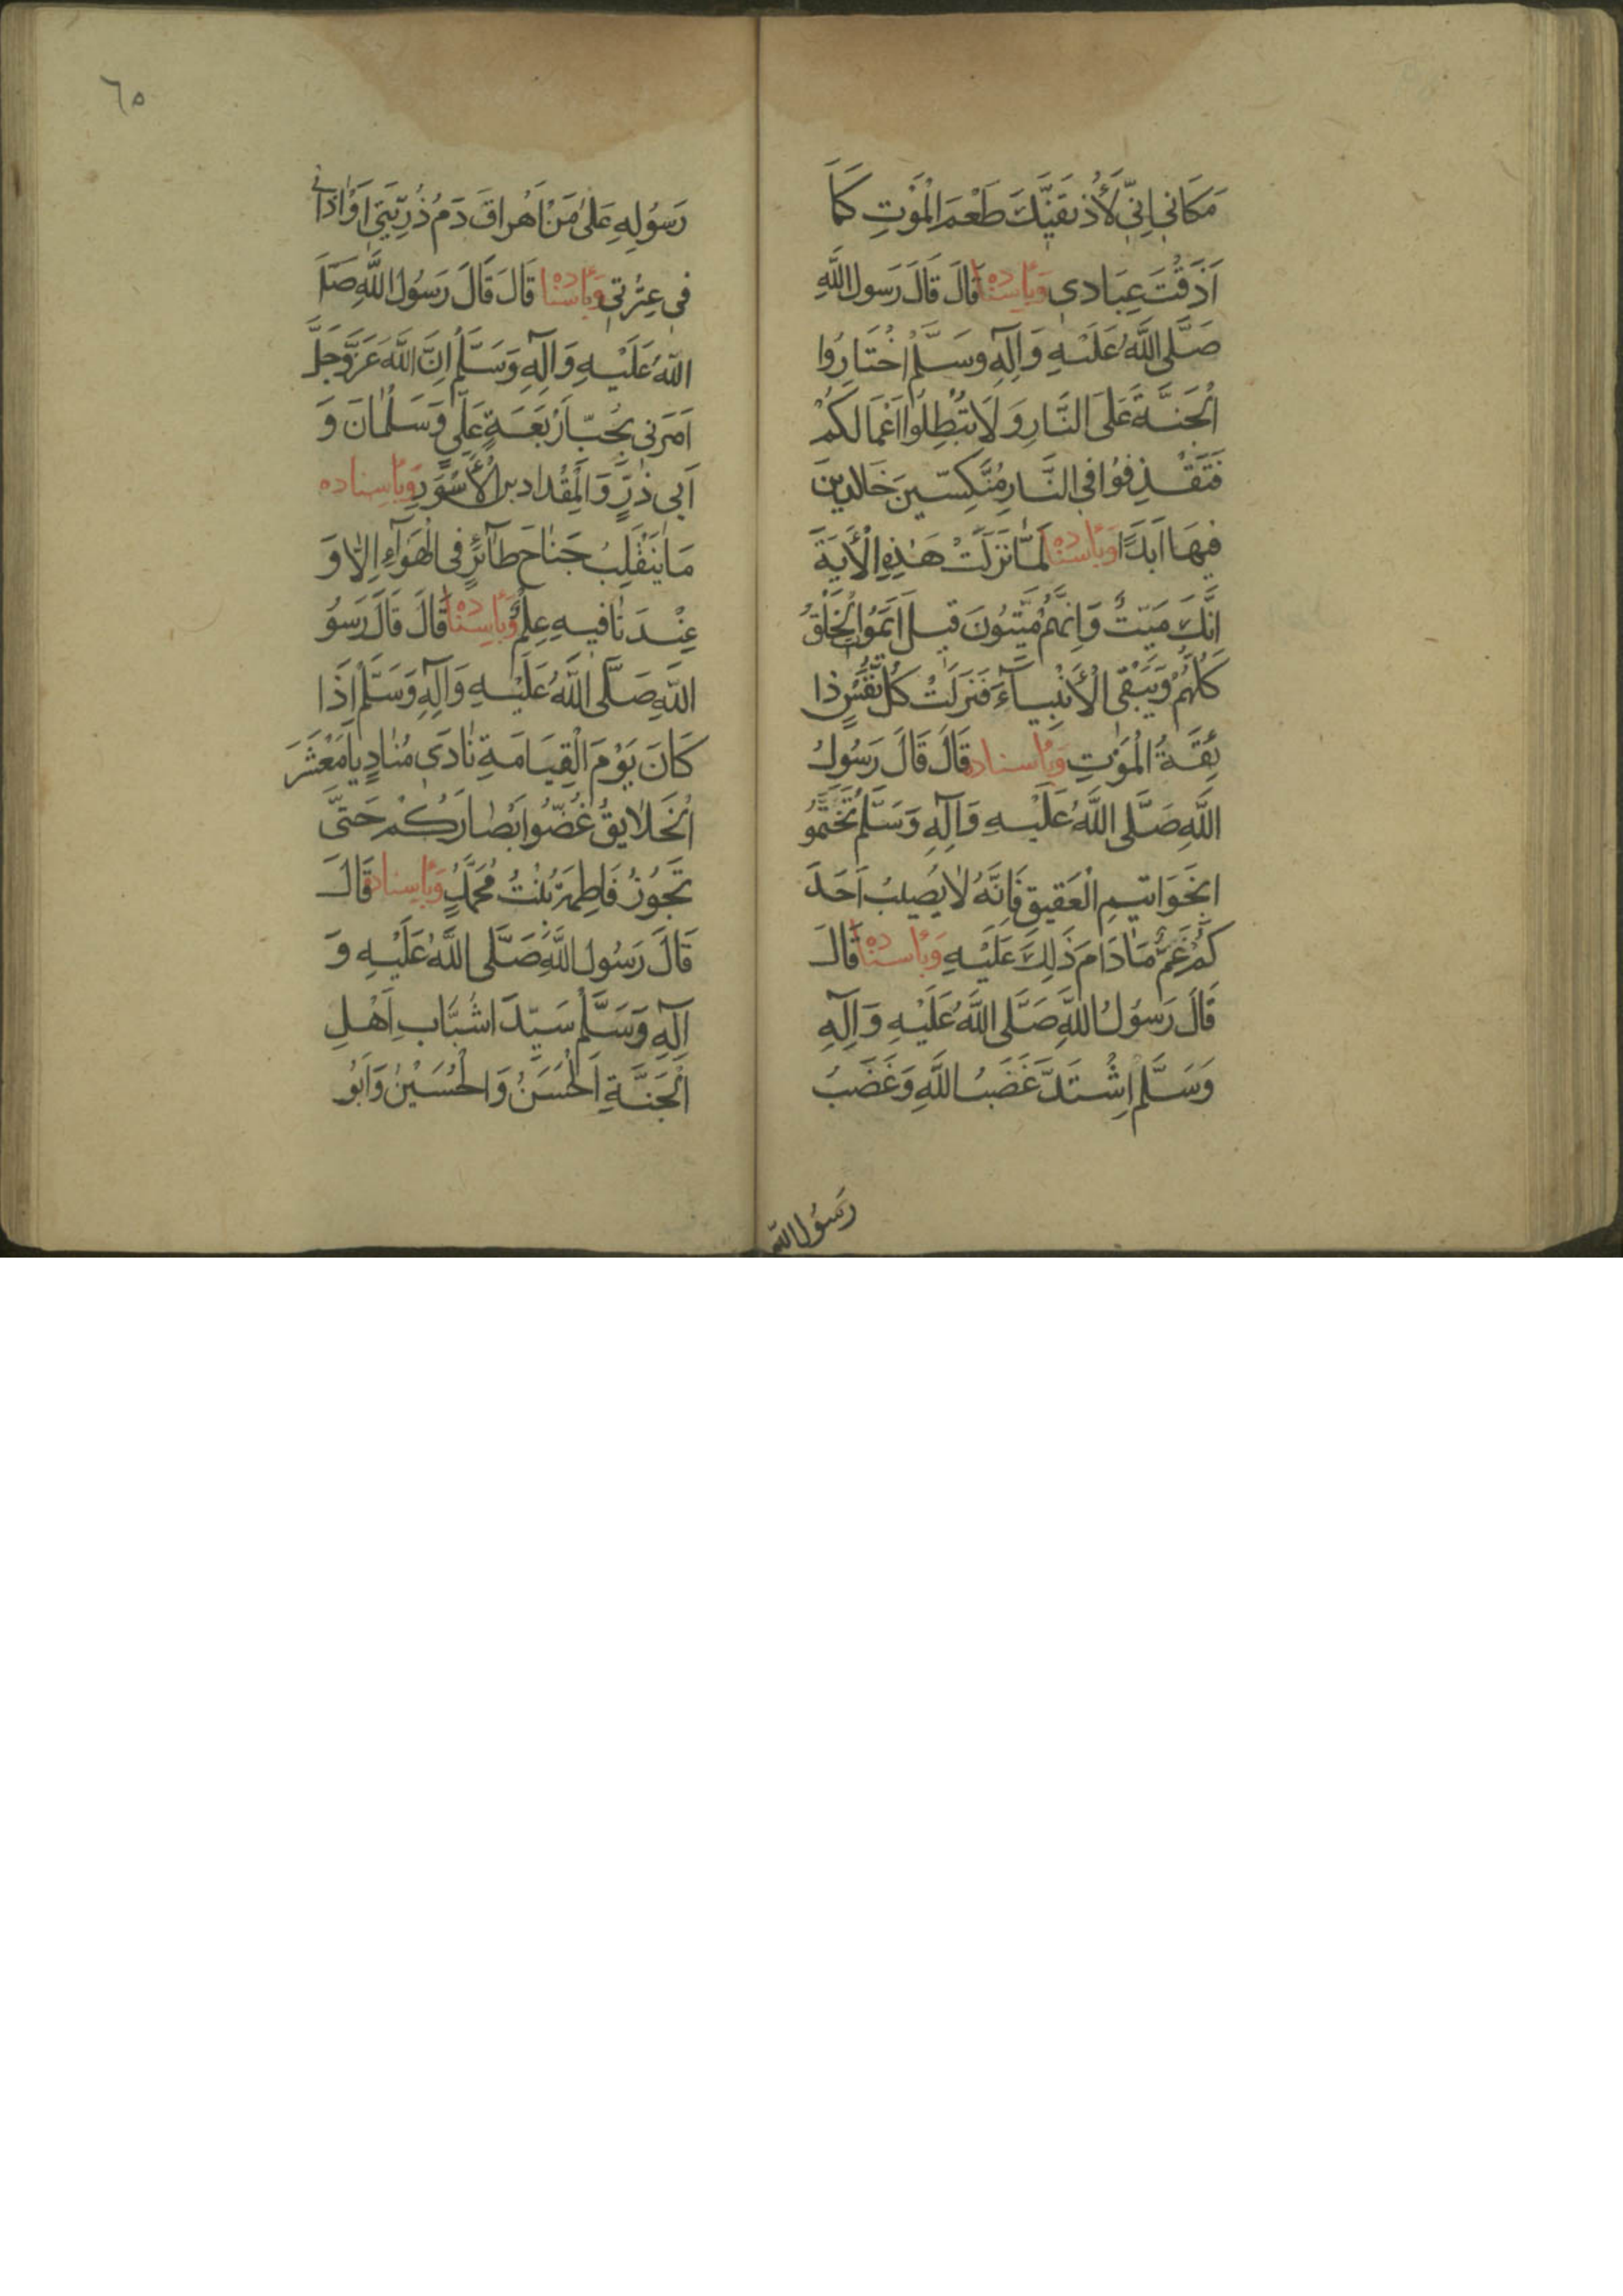 مَكَانِي اِنِّي لَأُذِيقَنَّكَ طَعْمَ الْمَوْتِ كَمَا
اَذَقْتَ عِبَادِي وَبِأسْنَادِهِ قَالَ قَالَ رَسُول اللَّهِ
صَلَّى اللَّهُ عَلَيْهِ وَآلِهِ وسَلَّمْ اخْتَارُوا
الْجَنَّةَ عَلَى النَّارِ وَلَا تُبْطِلُوا اَعْمَالَكُمْ
فَتَقْذِفُوا فِي النَّارِ مُنَكِّسِينَ خَالِدِينَ
فِيهَا اَبَدًا وَبِأسْنَادِهِ لَمَّا نَزَلَتْ هَذِهِ الْأيَةَ
اِنَّكَ مَيِّتٌ وَاِنَّهُمْ مَيِّتُونَ قِيلَ اَيَمُوا الْخَلْقُ
كُلُّهُمْ وَيَبْقَى الْأَنْبِيَآءَ فَنَزَلَتْ كُلُّ نَفْسٍ ذا
ئِقَةُ الْمَوْتِ وَبِأسناده قَالَ قَالَ رَسُولُ
اللَّهِ صَلَّى اللَّهُ عَلَيْهِ وَآلِهِ وَسَلَّمْ تَخَتَّمُو
ابِخَوَاتِيمِ الْعَقِيقِ فَاِنَّهُ لَا يُصِيبُ اَحَدَ
كُمْ غَمٌّ مَادَامَ ذَلِكَ عَلَيْهِ وَبِأسْنَادِهِ قَالَ
قَالَ رَسُولُ اللَّهِ صَلَّى اللَّهُ عَلَيْهِ وَآلِهِ
وَسَلَّمْ اِشْتَدَّ غَضَبُ اللَّهِ وَغَضَبُ
رَسُول الله
٦٥
رَسُولِهِ عَلَى مَنْ اَهْرَاقَ دَمَ ذُرِّيَّتِي اَوْ اذَانِي
فِي عِتْرَتِي وَبِأسْنَادِهِ قَالَ قَالَ رَسُول اللَّهِ صَلَّى
اللَّهُ عَلَيْهِ وَآلِهِ وَسَلَّمْ اِنَّ اللَّهَ عَزَّوَجَلَّ
اَمَرَنِي بِحُبِّ اَرْبَعَةٍ عَلِيٍّ وَسَلْمَانَ وَ
اَبِي ذَرٍّ وَالْمِقْدَاد بن الْأَسْوَدِ وَبِأسناده
مَا يَنْقَلِبُ جَنَاحَ طَآئِرٍ فِي الْهَوَآءِ اِلَّا وَ
عِنْدَنَا فِيهِ عِلْمٌ وَبِأسْنَادِهِ قَالَ قَالَ رَسُوُ
اللَّهِ صَلَّى اللَّهُ عَلَيْهِ وَآلِهِ وَسَلَّمْ اِذَا
كَانَ يَوْمَ الْقِيَامَةِ نَادَى مُنَادٍ يَا مَعْشَرَ
الْخَلَايِقُ غُضُّوا اَبْصَارَكُمْ حَتَّى
تَجُوُزُ فَاطِمَةَ بْنْتُ مُحَمَّدٍ وَبِأسناده قَالَ
قَالَ رَسُول اللَّهِ صَلَّى اللَّهُ عَلَيْهِ وَ
آلِهِ وَسَلَّمْ سَيِّدَا شُبَّابِ اَهْلِ
الْجَنَّةِ اَلْحَسَنُ وَالْحُسَيْنُ وَاَبُو